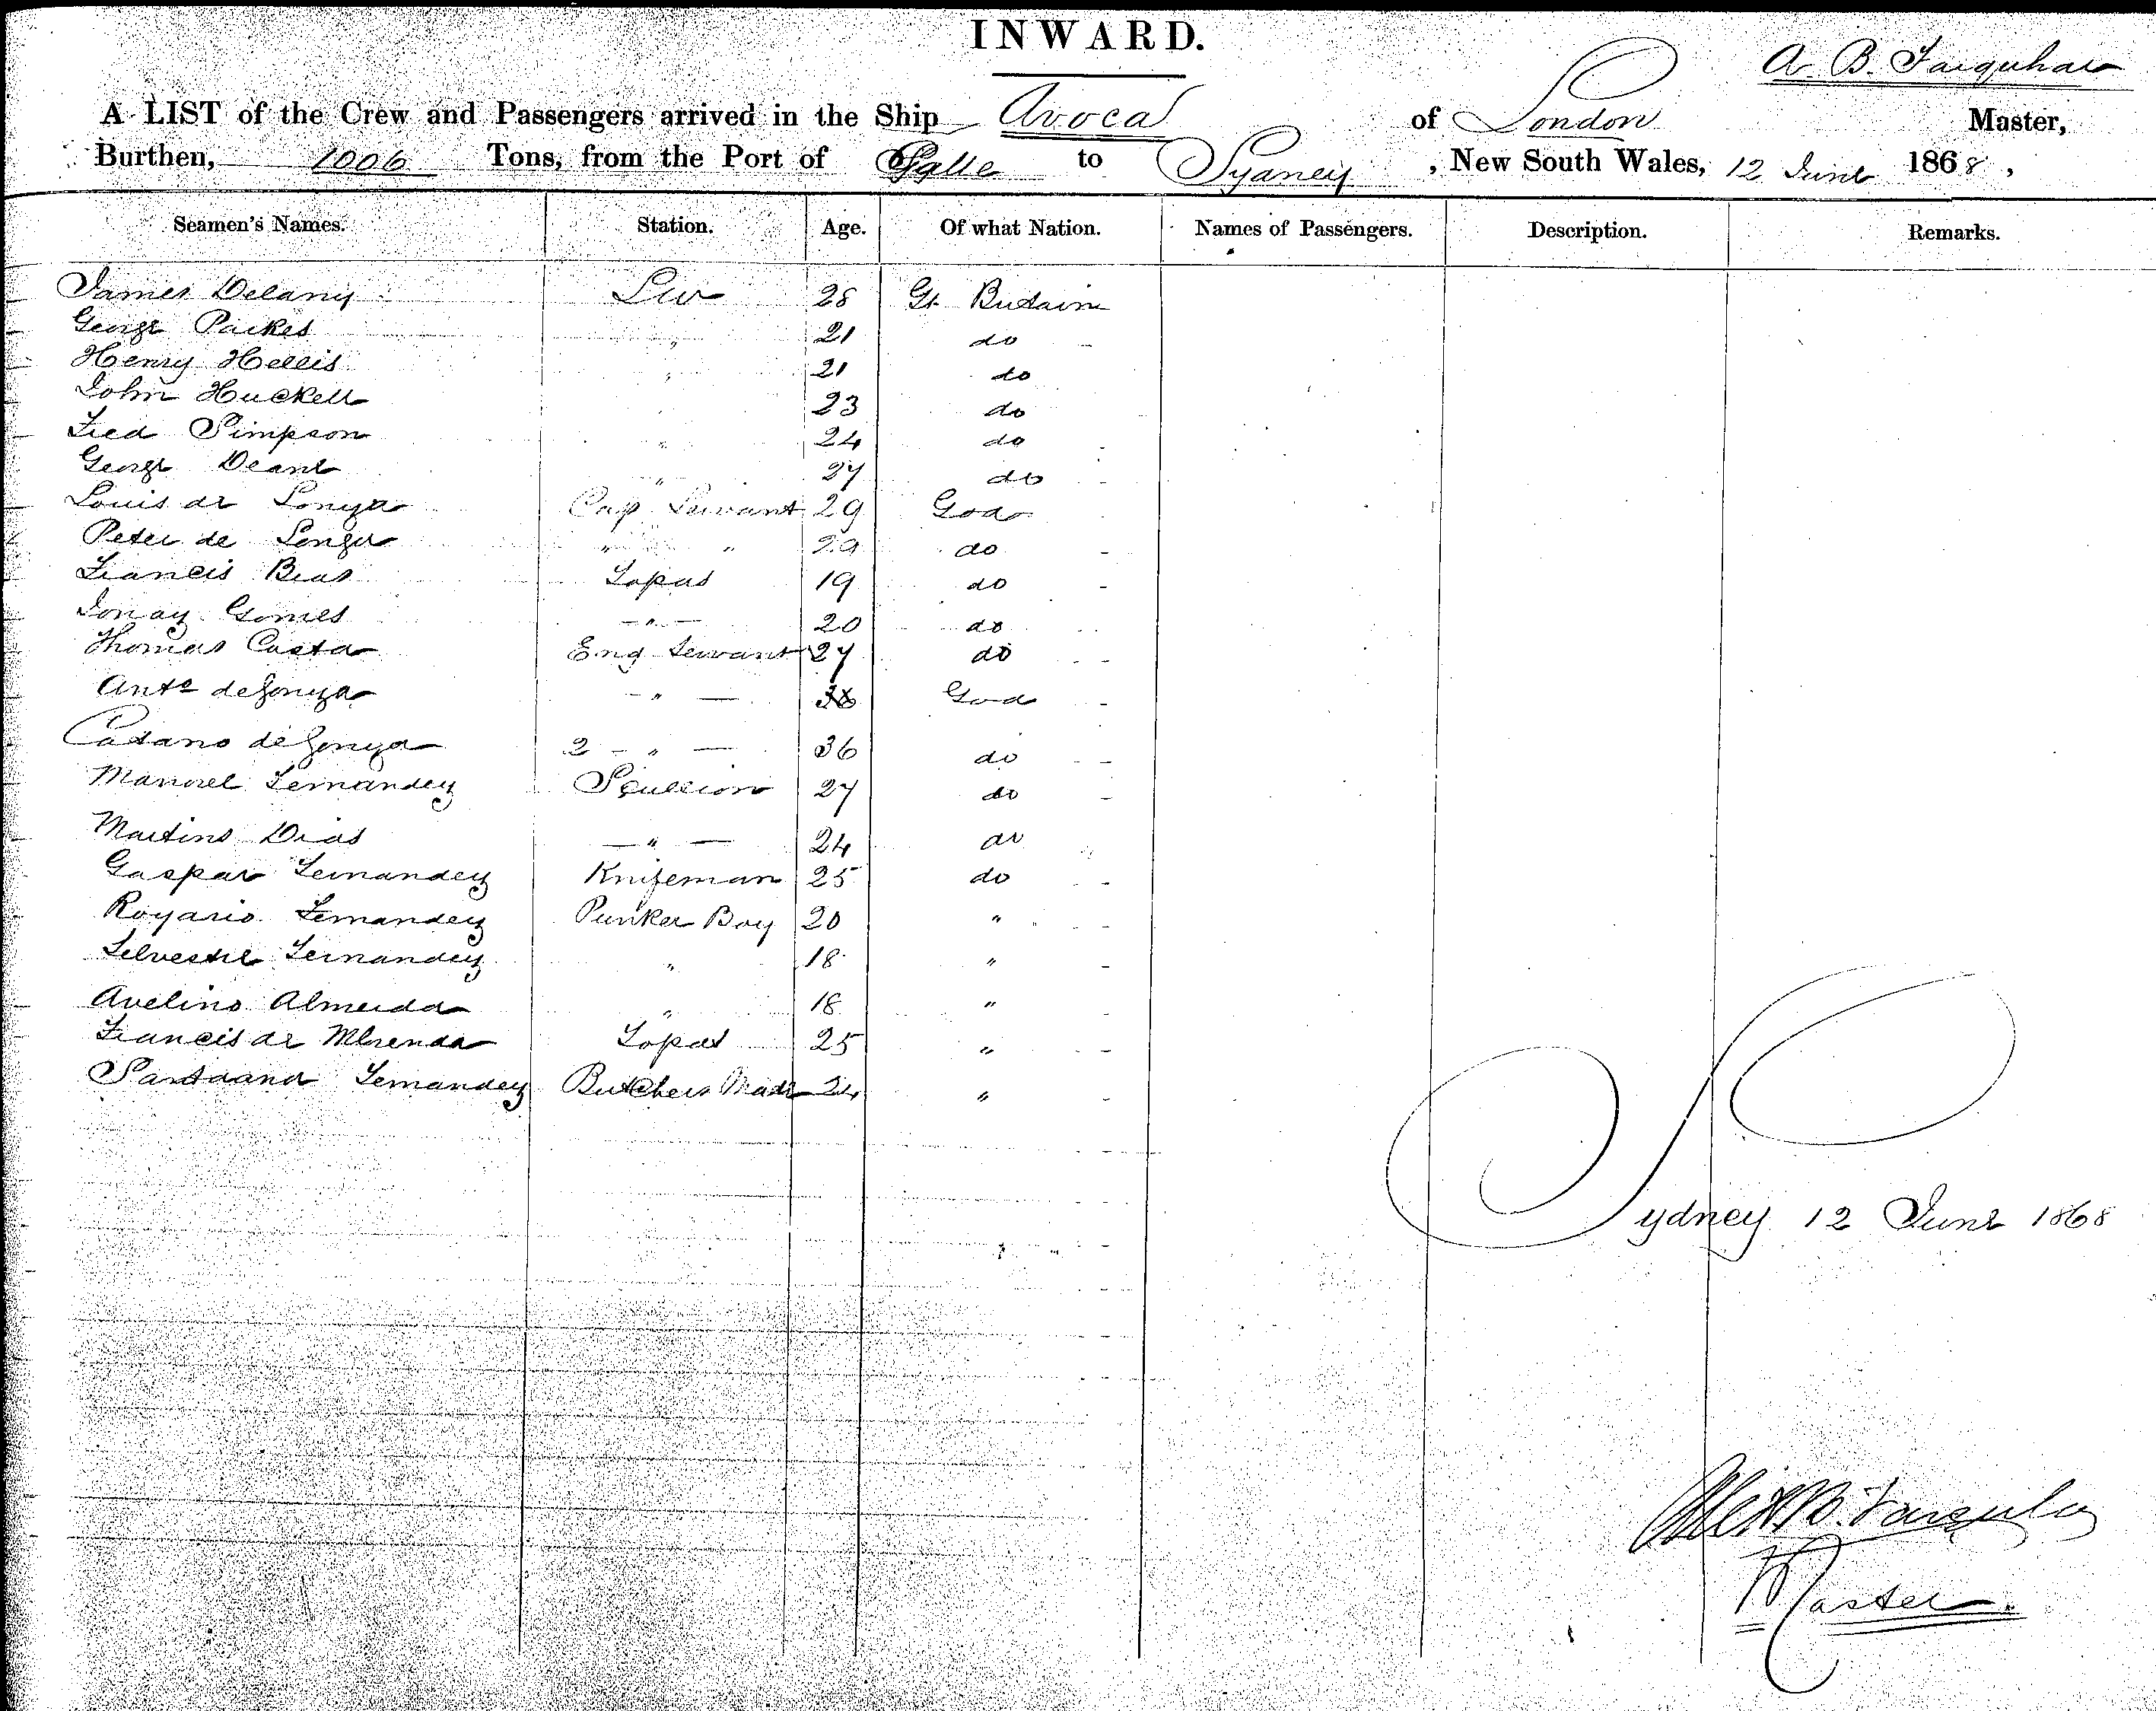 INWARD.
A. B. Farquhar
A LIST of the Crew and Passengers arrived in the Ship Avoca of London Master,
Burthen, 1006 Tons, from the Port of Galle to Sydney, New South Wales, 12 June 1868,
Seamen's Names. Station. Age. Of what Nation. Names of Passengers. Description. Remarks.
James Delany 28 Gt. Britain
George Parkes " 21 do
Henry Hellis " 21 do
John Huckell 23 do
Fred Simpson " 24 do
George Deane " 27 do
Louis de Souza Cap Servant 29 Goa
Peter de Souza " " 29 do
Francis Topas 19 do
Gomes " 20 do
Thomas Costa Eng Servant 27 do
Anto de Souza " Goa
Catano de Souza 2 - " - 36 do
Manoel Fernandez Scullion 27 do
Martins Dias " 24 do
Gaspar Fernandez Knifeman 25 do
Rozario Fernandez Punker Boy 20 "
Selvestre Fernandez " 18 "
Avelino Almeida " 18 "
Francis de Topas 25 "
Santaana Fernandez Butchers Mate 24 "
Sydney 12 June 1868
Alex B. Farquhar
Master.